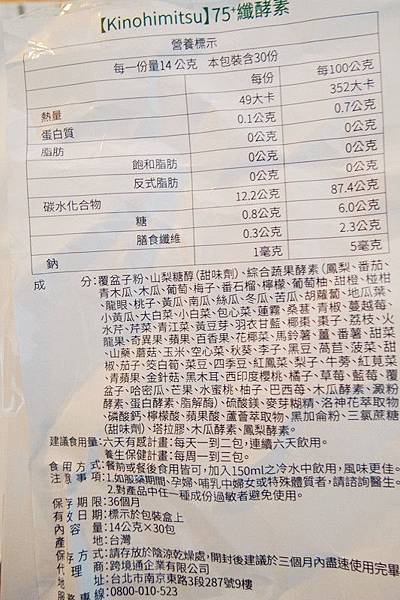 【Kinohimitsu】75⁺纖酵素
營養標示
每一份量14公克 本包裝含30份
每份 每100公克
熱量 49大卡 352大卡
蛋白質 0.1公克 0.7公克
脂肪 0公克 0公克
飽和脂肪 0公克 0公克
反式脂肪 0公克 0公克
碳水化合物 12.2公克 87.4公克
糖 0.8公克 6.0公克
膳食纖維 0.3公克 2.3公克
鈉 1毫克 5毫克
成分:覆盆子粉、山梨糖醇(甜味劑)、綜合蔬果酵素(鳳梨、番茄、
青木瓜、木瓜、葡萄、梅子、番石榴、檸檬、葡萄柚、甜橙、椪柑
、龍眼、桃子、黃瓜、南瓜、絲瓜、冬瓜、苦瓜、胡蘿蔔、地瓜葉、
小黃瓜、大白菜、小白菜、包心菜、蓮霧、桑葚、青椒、蔓越莓、
水芹、芹菜、青江菜、黃豆芽、羽衣甘藍、椰棗、棗子、荔枝、火
龍果、奇異果、蘋果、百香果、花椰菜、馬鈴薯、薑、番薯、甜菜
、山藥、蘑菇、玉米、空心菜、秋葵、李子、黑豆、萵苣、菠菜、甜
椒、茄子、筊白筍、菜豆、四季豆、紅鳳菜、梨子、牛蒡、紅莧菜
、青蘋果、金針菇、黑木耳、西印度櫻桃、橘子、草莓、藍莓、覆
盆子、哈密瓜、芒果、水蜜桃、柚子、巴西莓、木瓜酵素、澱粉
酵素、蛋白酵素、脂解酶)、硫酸鎂、麥芽糊精、洛神花萃取物
、磷酸鈣、檸檬酸、蘋果酸、蘆薈萃取物、黑加侖粉、三氯蔗糖
(甜味劑)、塔拉膠、木瓜酵素、鳳梨酵素。
建議食用量:六天有感計畫:每天一到二包,連續六天飲用。
養生保健計畫:每周一到三包。
食用方式:餐前或餐後食用皆可,加入150ml之冷水中飲用,風味更佳。
注意事項:1.如服藥期間、孕婦、哺乳中婦女或特殊體質者,請諮詢醫生。
2.對產品中任一種成份過敏者避免使用。
保存期限:36個月
有效日期:標示於包裝盒上
內容量:14公克×30包
產地:台灣
保存方式:請存放於陰涼乾燥處,開封後建議於三個月內盡速使用完畢
代理商:跨境通企業有限公司
地址:台北市南京東路3段287號9樓
服務專線:0800-010-523